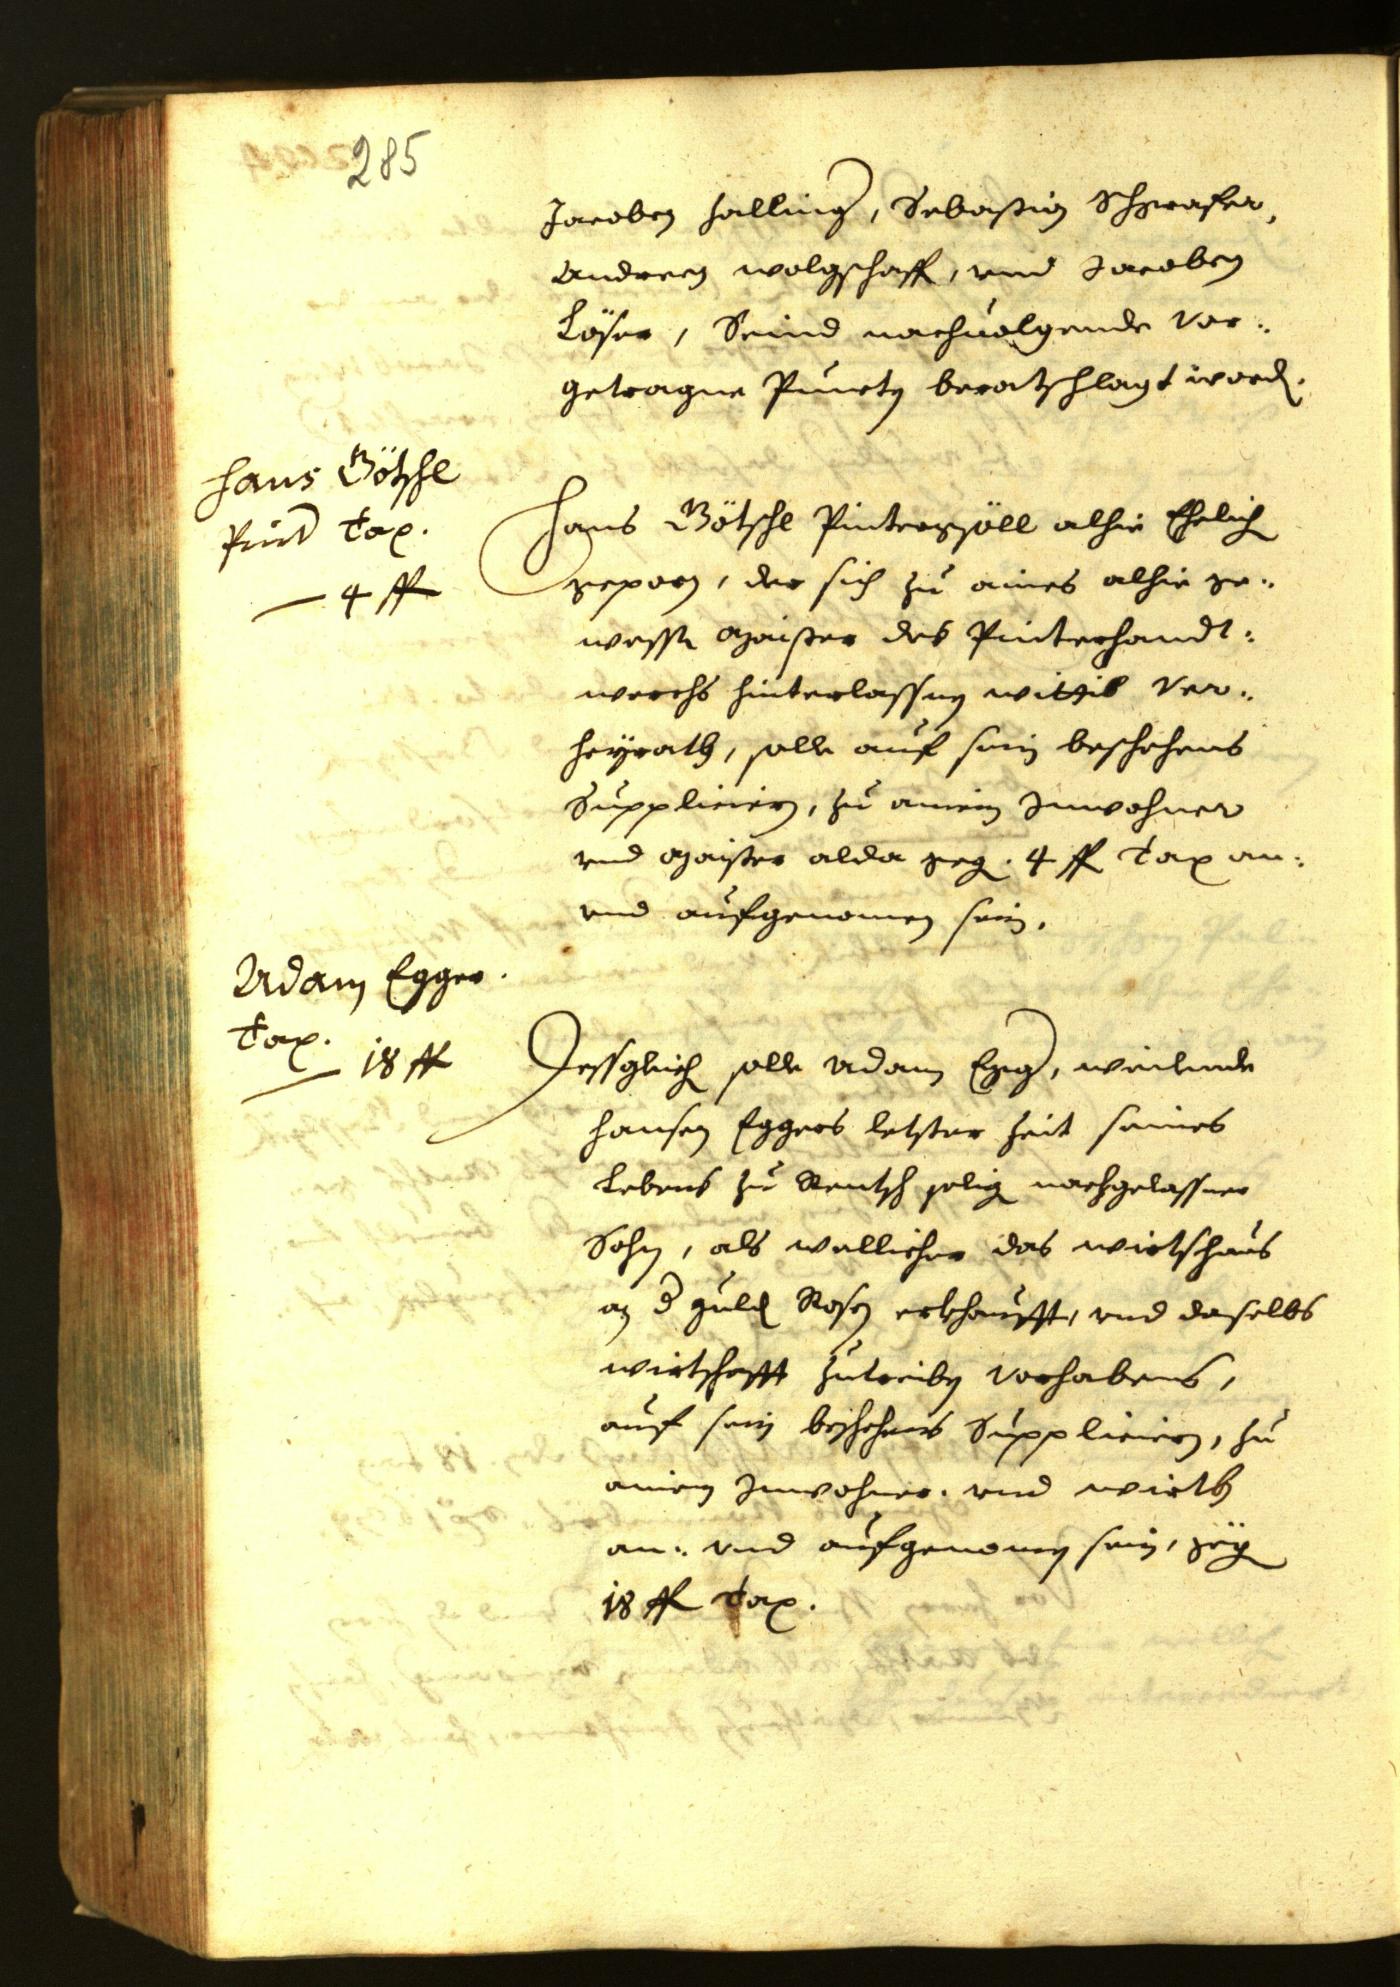 285
Jacoben Halling, Sebastian Schgrafer,
Andreen Wolgschaff, vnd Jacoben
Löser, Seind nachuolgende vor„
getragne Puncty beratschlagt word.
Hans Götschl
Pint Tax.
4 ff
Hans Götschl Pintergsöll alhie Ehelich
geporn, der sich zu aines alhie ge„
wesste Maister des Pinterhandt„
werchs hinterlassnen Wittib ver„
heÿrath, solle auf sein beschehens
Supplicieren, zu ainem Inwohner
vnd Maister alda geg. 4 ff Tax an„
vnd aufgenomen sein.
Adam Egger.
Tax.
18 ff
Dessgleich solle Adam Egg, weilende
Hansen Eggers letster Zeit seines
Lebens zu Rentsch selig nachgelassner
Sohn, als wellicher das Wirtshaus
an d guld Rosen erkhaufft, vnd daselbs
Wirtschafft zutreiben vorhabens,
auf sein beschehens Supplicieren, zu
ainem Inwohner vnd Wirth
an„ vnd aufgenomen sein, geg
18 ff Tax.